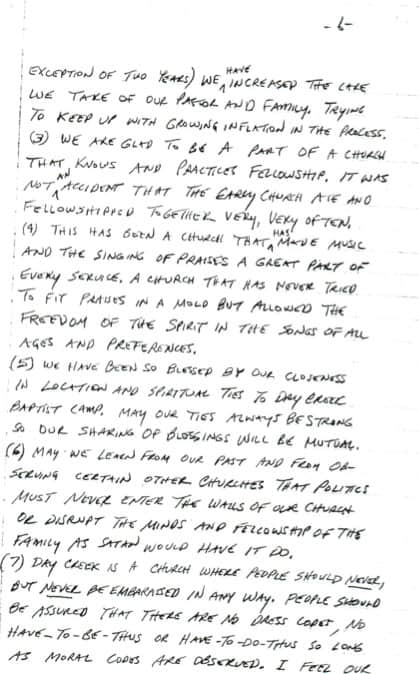 -6-
EXCEPTION OF TWO YEARS) WE HAVE INCREASED THE CARE
WE TAKE OF OUR PASTOR AND FAMILY. TRYING
TO KEEP UP WITH GROWING INFLATION IN THE PROCESS.
(3) WE ARE GLAD TO BE A PART OF A CHURCH
THAT KNOWS AND PRACTICES FELLOWSHIP. IT WAS
NOT AN ACCIDENT THAT THE EARLY CHURCH ATE AND
FELLOWSHIPPED TOGETHER VERY, VERY OFTEN.
(4) THIS HAS BEEN A CHURCH THAT HAS MADE MUSIC
AND THE SINGING OF PRAISES A GREAT PART OF
EVERY SERVICE. A CHURCH THAT HAS NEVER TRIED
TO FIT PRAISES IN A MOLD BUT ALLOWED THE
FREEDOM OF THE SPIRIT IN THE SONGS OF ALL
AGES AND PREFERENCES.
(5) WE HAVE BEEN SO BLESSED BY OUR CLOSENESS
IN LOCATION AND SPIRITUAL TIES TO DRY CREEK
BAPTIST CAMP. MAY OUR TIES ALWAYS BE STRONG
SO OUR SHARING OF BLESSINGS WILL BE MUTUAL.
(6) MAY WE LEARN FROM OUR PAST AND FROM OB-
SERVING CERTAIN OTHER CHURCHES THAT POLITICS
MUST NEVER ENTER THE WALLS OF OUR CHURCH
OR DISRUPT THE MINDS AND FELLOWSHIP OF THE
FAMILY AS SATAN WOULD HAVE IT DO.
(7) DRY CREEK IS A CHURCH WHERE PEOPLE SHOULD NEVER,
BUT NEVER BE EMBARASSED IN ANY WAY. PEOPLE SHOULD
BE ASSURED THAT THERE ARE NO DRESS CODES, NO
HAVE-TO-BE-THUS OR HAVE-TO-DO-THUS SO LONG
AS MORAL CODES ARE OBSERVED. I FEEL OUR